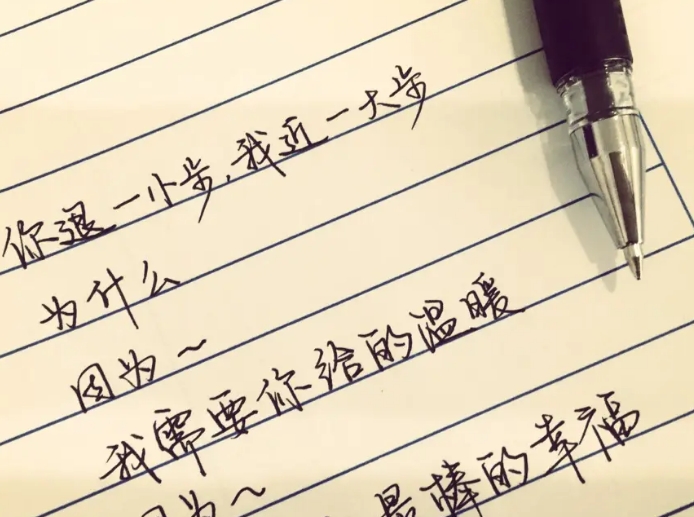 你退一小步,我近一大步
为什么
因为~
我需要你给的温暖
因为~
最棒的幸福